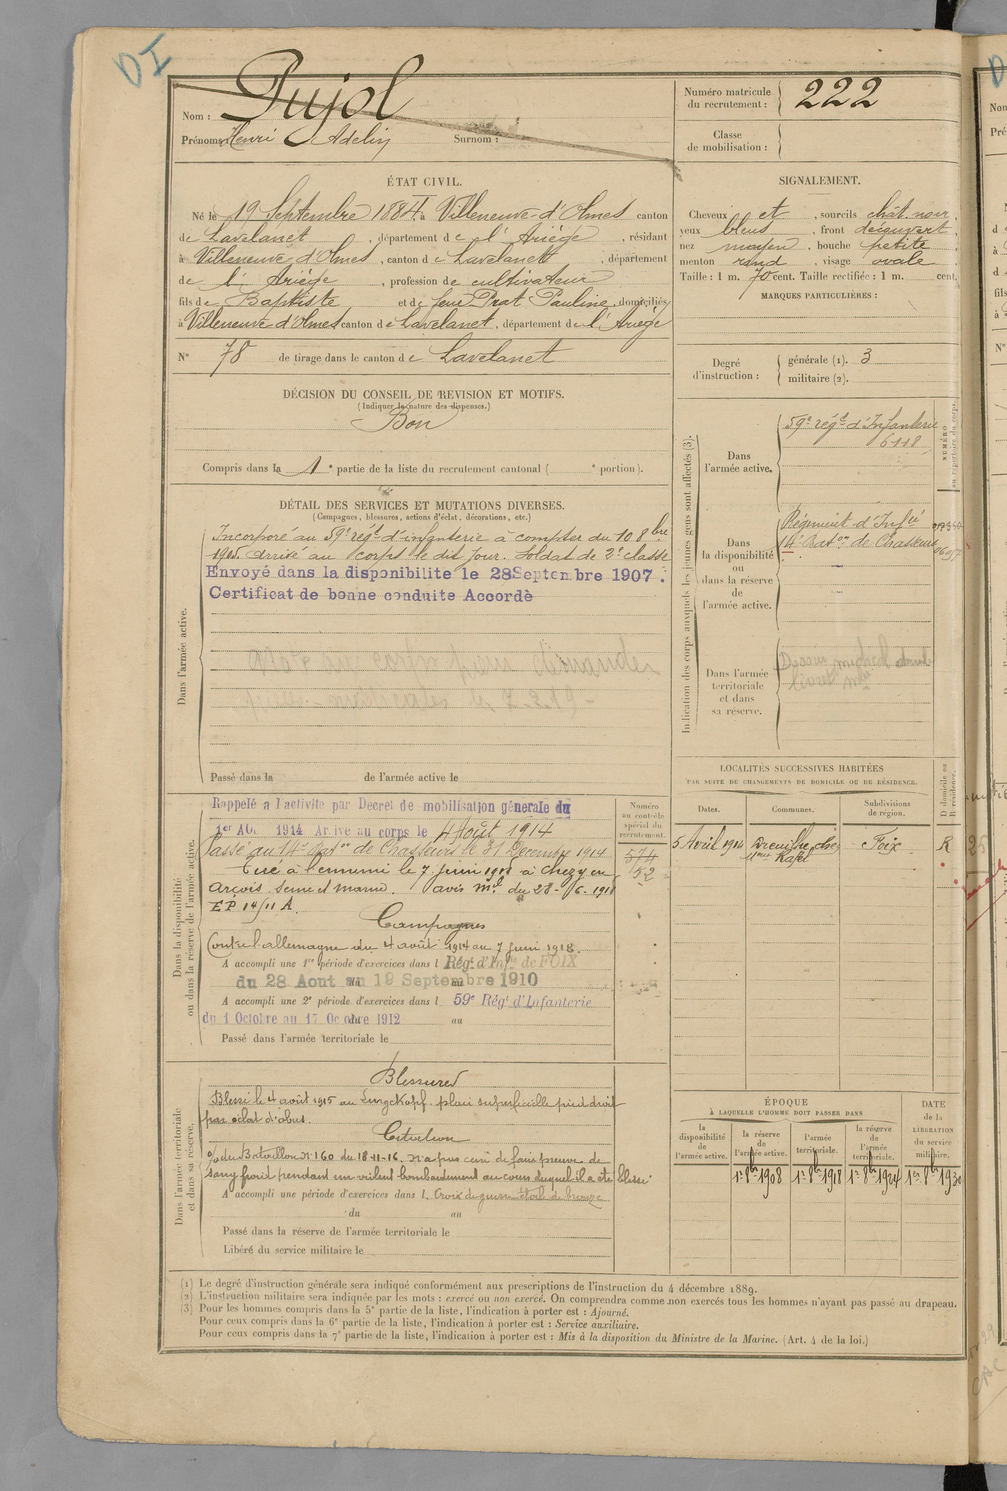 DI
Nom : Pujol
Prénoms : Henri Adelin Surnom :
Numéro matricule du recrutement : 222
Classe de mobilisation :
ÉTAT CIVIL.
Né le 19 Septembre 1884 à Villeneuve-d'Olmes canton
de Lavelanet, département de l'Ariège, résidant
à Villeneuve d'Olmes, canton de Lavelanet, département
de l'Ariège, profession de cultivateur
fils de Baptiste et de feue Prat Pauline, domiciliés
à Villeneuve d'Olmes canton de Lavelanet, département de l'Ariège
N° 78 de tirage dans le canton de Lavelanet
SIGNALEMENT.
Cheveux et, sourcils chât. noir,
yeux bleus, front découvert,
nez moyen, bouche petite,
menton rond, visage ovale
Taille : 1 m. 70 cent. Taille rectifiée : 1 m. cent.
MARQUES PARTICULIÈRES :
Degré d'instruction : générale (1). 3
militaire (2).
DÉCISION DU CONSEIL DE REVISION ET MOTIFS.
(Indiquer la nature des dispenses.)
Bon
Compris dans la 1e partie de la liste du recrutement cantonal ( e portion).
DÉTAIL DES SERVICES ET MUTATIONS DIVERSES.
(Campagnes, blessures, actions d'éclat, décorations, etc.)
Dans l'armée active.
Incorporé au 59e régt d'infanterie à compter du 10 8bre
1905. arrivé au corps le dit jour. Soldat de 2e classe
Envoyé dans la disponibilite le 28 Septembre 1907.
Certificat de bonne conduite Accordé
Passé dans la de l'armée active le
Indication des corps auxquels les jeunes gens sont affectés (3).
NUMÉRO au répertoire du corps.
Dans l'armée active.
59e régt d'Infanterie
6118
Dans la disponibilité ou dans la réserve de l'armée active.
Régiment d'Infie
14e Baton de Chasseurs
Dans l'armée territoriale et dans sa réserve.
Dans la disponibilité ou dans la réserve de l'armée active.
Numéro au contrôle spécial du recrutement.
574
152
Rappelé à l'activité par Decret de mobilisation génerale du
1er Août 1914 Arrivé au corps le 4 Août 1914
Passé au 14e Baton de Chasseurs le 31 Décembre 1914
Tué à l'ennemi le 7 juin 1918 à Chézy en
Orxois Seine et marne. avis Mel du 28-6-1918
EP 14/11 A.
Campagnes
Contre l'allemagne du 4 août 1914 au 7 juin 1918.
A accompli une 1re période d'exercices dans l Régt d'Infie de FOIX
du 28 Aout au 19 Septembre 1910
A accompli une 2e période d'exercices dans l 59e Régt d'Infanterie
du 1 Octobre au 17 Octobre 1912 au
Passé dans l'armée territoriale le
LOCALITÉS SUCCESSIVES HABITÉES
PAR SUITE DE CHANGEMENTS DE DOMICILE OU DE RÉSIDENCE.
Dates. Communes. Subdivisions de région. D domicile ou R résidence.
5 Avril 1914 Foix R
Dans l'armée territoriale et dans sa réserve.
Blessures
Blessé le 4 août 1915 au Lingekopf. plaie superficielle pied droit
par éclat d'obus.
Citation
O/ du Bataillon N° 160 du 18-11-16. N'a pas cessé de faire preuve de
sang froid pendant un violent bombardement au cours duquel il a été blessé
A accompli une période d'exercices dans l. Croix de guerre étoile de bronze
du au
Passé dans la réserve de l'armée territoriale le
Libéré du service militaire le
ÉPOQUE
À LAQUELLE L'HOMME DOIT PASSER DANS
la disponibilité de l'armée active.
la réserve de l'armée active.
l'armée territoriale.
la réserve de l'armée territoriale.
DATE de la LIBÉRATION du service militaire.
1er 8bre 1908 1er 8bre 1918 1er 8bre 1924 1er 8bre 1930
(1) Le degré d'instruction générale sera indiqué conformément aux prescriptions de l'instruction du 4 décembre 1889.
(2) L'instruction militaire sera indiquée par les mots : exercé ou non exercé. On comprendra comme non exercés tous les hommes n'ayant pas passé au drapeau.
(3) Pour les hommes compris dans la 5e partie de la liste, l'indication à porter est : Ajourné.
Pour ceux compris dans la 6e partie de la liste, l'indication à porter est : Service auxiliaire.
Pour ceux compris dans la 7e partie de la liste, l'indication à porter est : Mis à la disposition du Ministre de la Marine. (Art. 4 de la loi.)